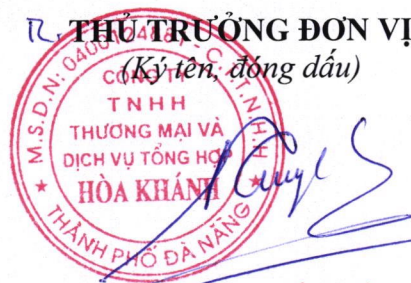 THỦ TRƯỞNG ĐƠN VỊ
(Ký tên, đóng dấu)
M.S.D.N:
C.T.T.N.H.H
CÔNG TY
TNHH
THƯƠNG MẠI VÀ
DỊCH VỤ TỔNG HỢP
HÒA KHÁNH
THÀNH PHỐ ĐÀ NẴNG